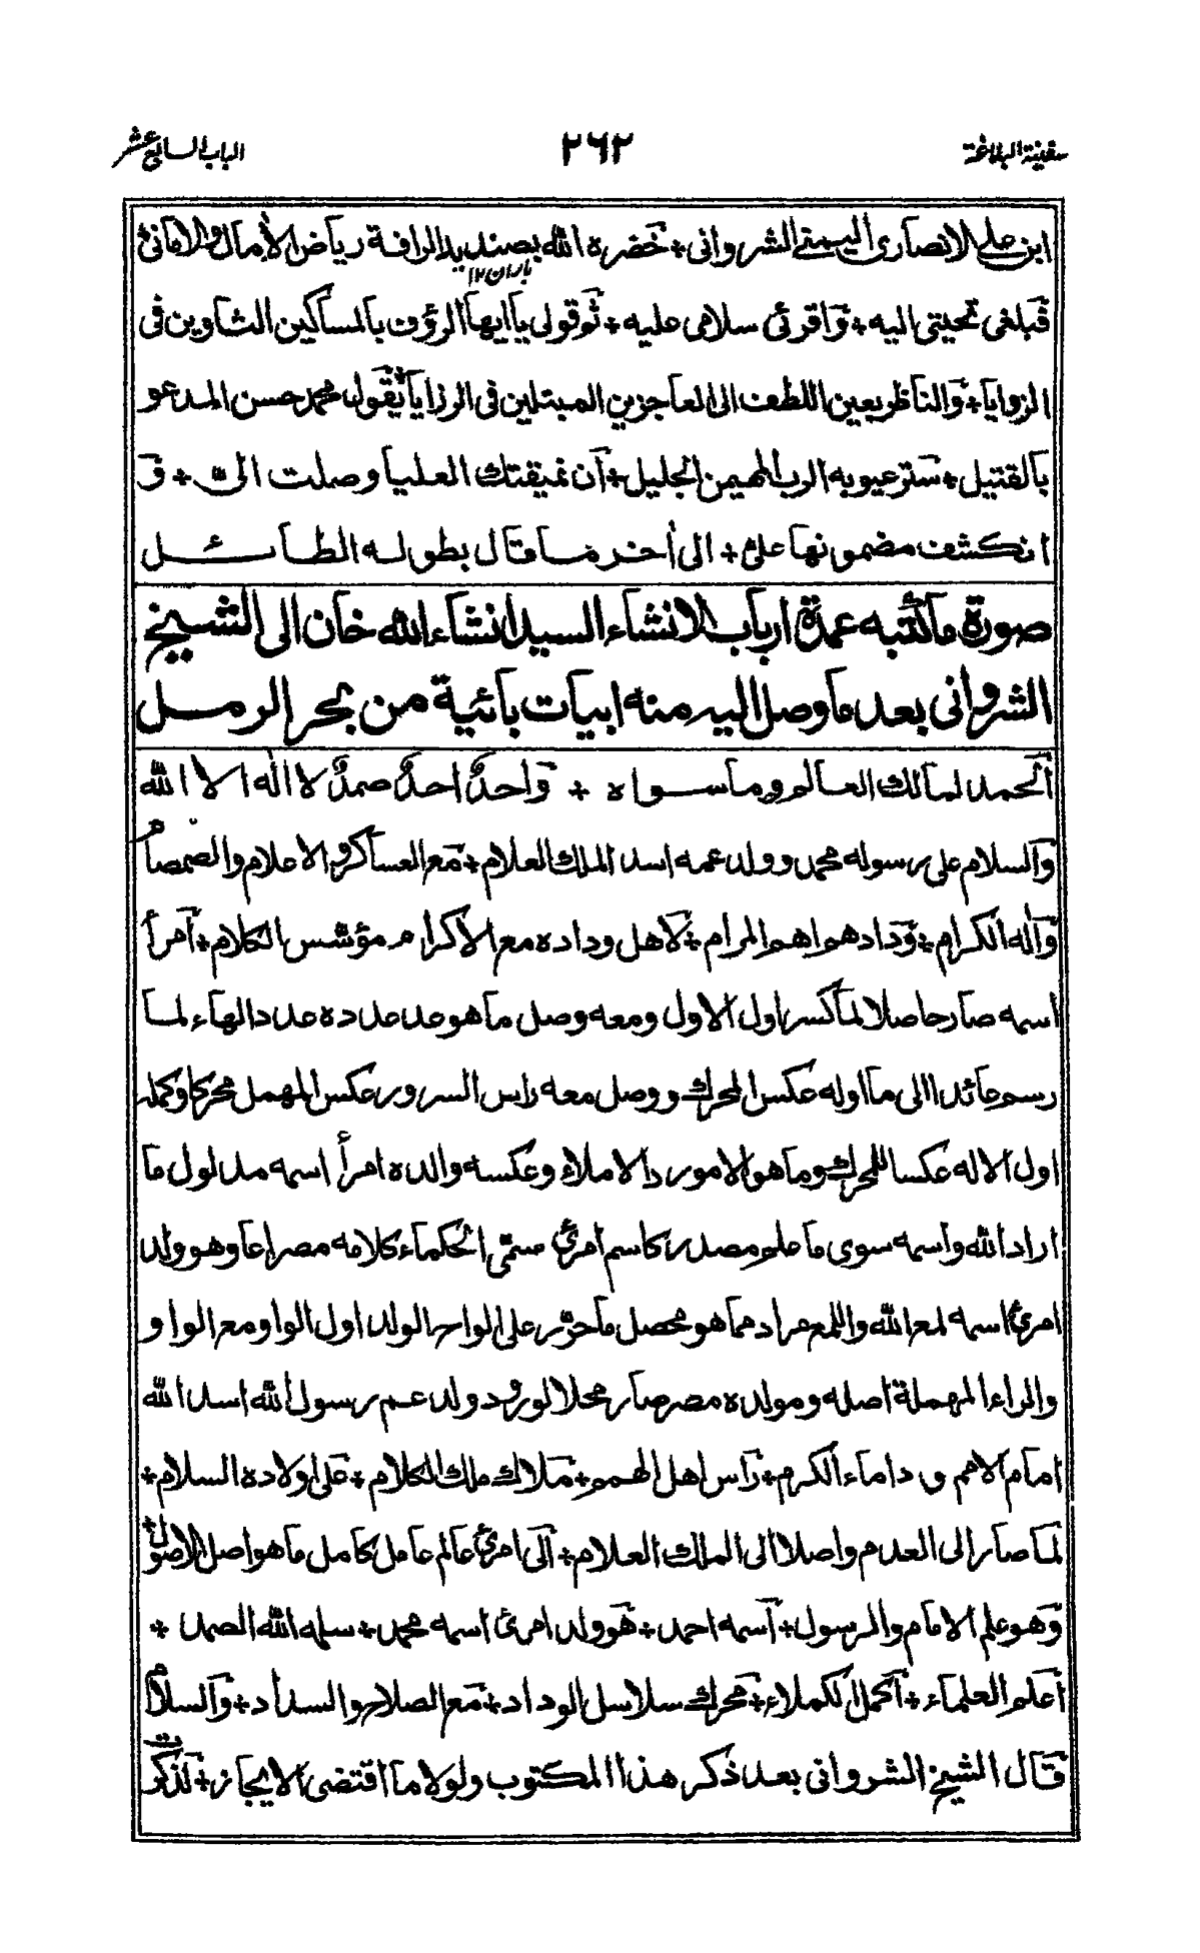 سفينة البلاغة ٢٦٢ الباب السابع عشر
ابن علي الانصاري اليمني الشرواني + خضره الله بصنديد الرافة رياض الأمال والاماني
باران ١٢
فبلغى تحيتى اليه + واقرئى سلامى عليه + ثو قولى يا ايها الرؤف بالمساكين الثاوين فى
الزوايا + والناظر بعين اللطف الى العاجزين المبتلين فى الرزايا + يقول محمد حسن المدعو
بالقتيل + ستر عيوبه الرب المهيمن الجليل + ان نميقتك العليا وصلت الىّ + و
انكشف مضمونها علىّ + الى أخر ما قال بطوله الطائل
صورة ما كتبه عمدة ارباب الانشاء السيد انشاء الله خان الى الشيخ
الشرواني بعد ما وصل اليه منه ابيات بائية من بحر الرمل
الحمد لمالك العالم وما سواه + واحدٌ احدٌ صمدٌ لا اله الا الله
والسلام على رسوله محمد وولد عمه اسد الملك العلام + مع العساكر والاعلام والصمصام
وأله الكرام + ودادهم اهم المرام + لاهل وداده مع الاكرام مؤسس الكلام + امرأ
اسمه صار حاصلا لما كسر اول الاول ومعه وصل ما هو عد عدده عدد الهاء لما
رسم عائدا الى ما اوله عكس المحرك ووصل معه راس السرور عكس المهمل محركا وكمله
اول الاله عكسا للمحرك وما هو الامور دالاملاء وعكسه والده امرأ اسمه مدلول ما
اراد الله واسمه سوى ما علم مصدرا كاسم امرئ سمّى الحكماء كلامه مصراعا وهو ولد
امرئ اسمه لمع الله واللمع مراد مما هو محصل ما حرّر على الواح الولد اول الواو مع الواو
والراء المهملة اصله ومولده مصر صار محلا لورود ولد عم رسول الله اسد الله
امام الامم وداماء الكرم + راس اهل الهمم + ملاك ملك الكلام + على اولاده السلام +
لما صار الى العدم واصلا الى الملك العلام + الى امرئ عالم عامل كامل ما هو اصل الاصول +
وهو علم الامام والرسول + اسمه احمد + هو ولد امرئ اسمه محمد + سلمه الله الصمد +
اعلم العلماء + اكمل الكملاء + محرك سلاسل الوداد + مع الصلاح والسداد + والسلام
قال الشيخ الشرواني بعد ذكر هذا المكتوب ولولا ما اقتضى الايجاز + لذكرت